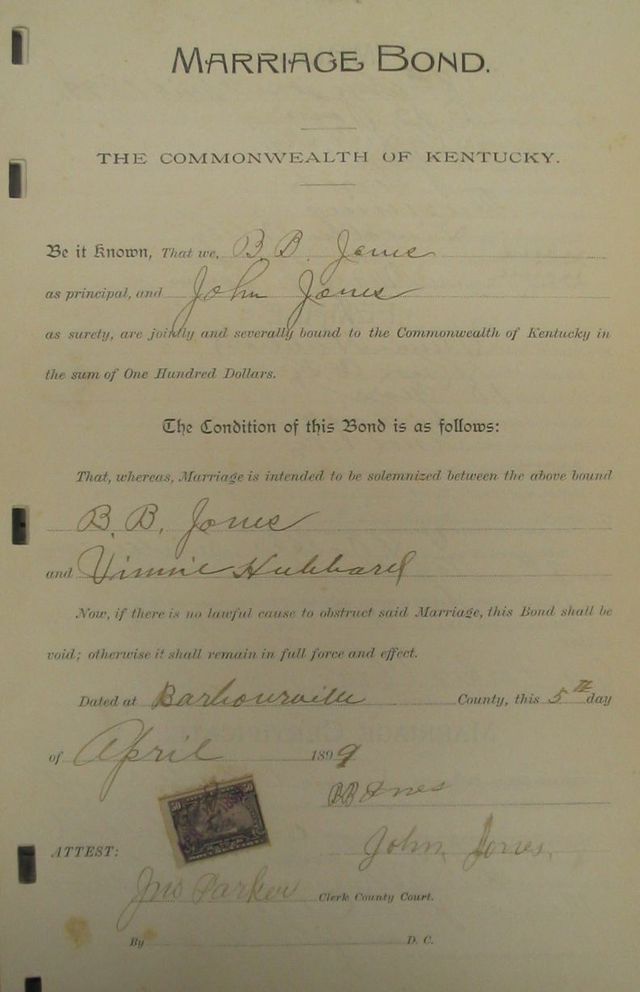 MARRIAGE BOND.
THE COMMONWEALTH OF KENTUCKY.
Be it Known, That we, B. B. Jones
as principal, and John Jones
as surety, are jointly and severally bound to the Commonwealth of Kentucky in
the sum of One Hundred Dollars.
The Condition of this Bond is as follows:
That, whereas, Marriage is intended to be solemnized between the above bound
B. B. Jones
and Vinnie Hubbard
Now, if there is no lawful cause to obstruct said Marriage, this Bond shall be
void; otherwise it shall remain in full force and effect.
Dated at Barbourville County, this 5th day
of April 1899
B B Jones
50 50
ATTEST: John Jones.
Jno Parker Clerk County Court.
By D. C.